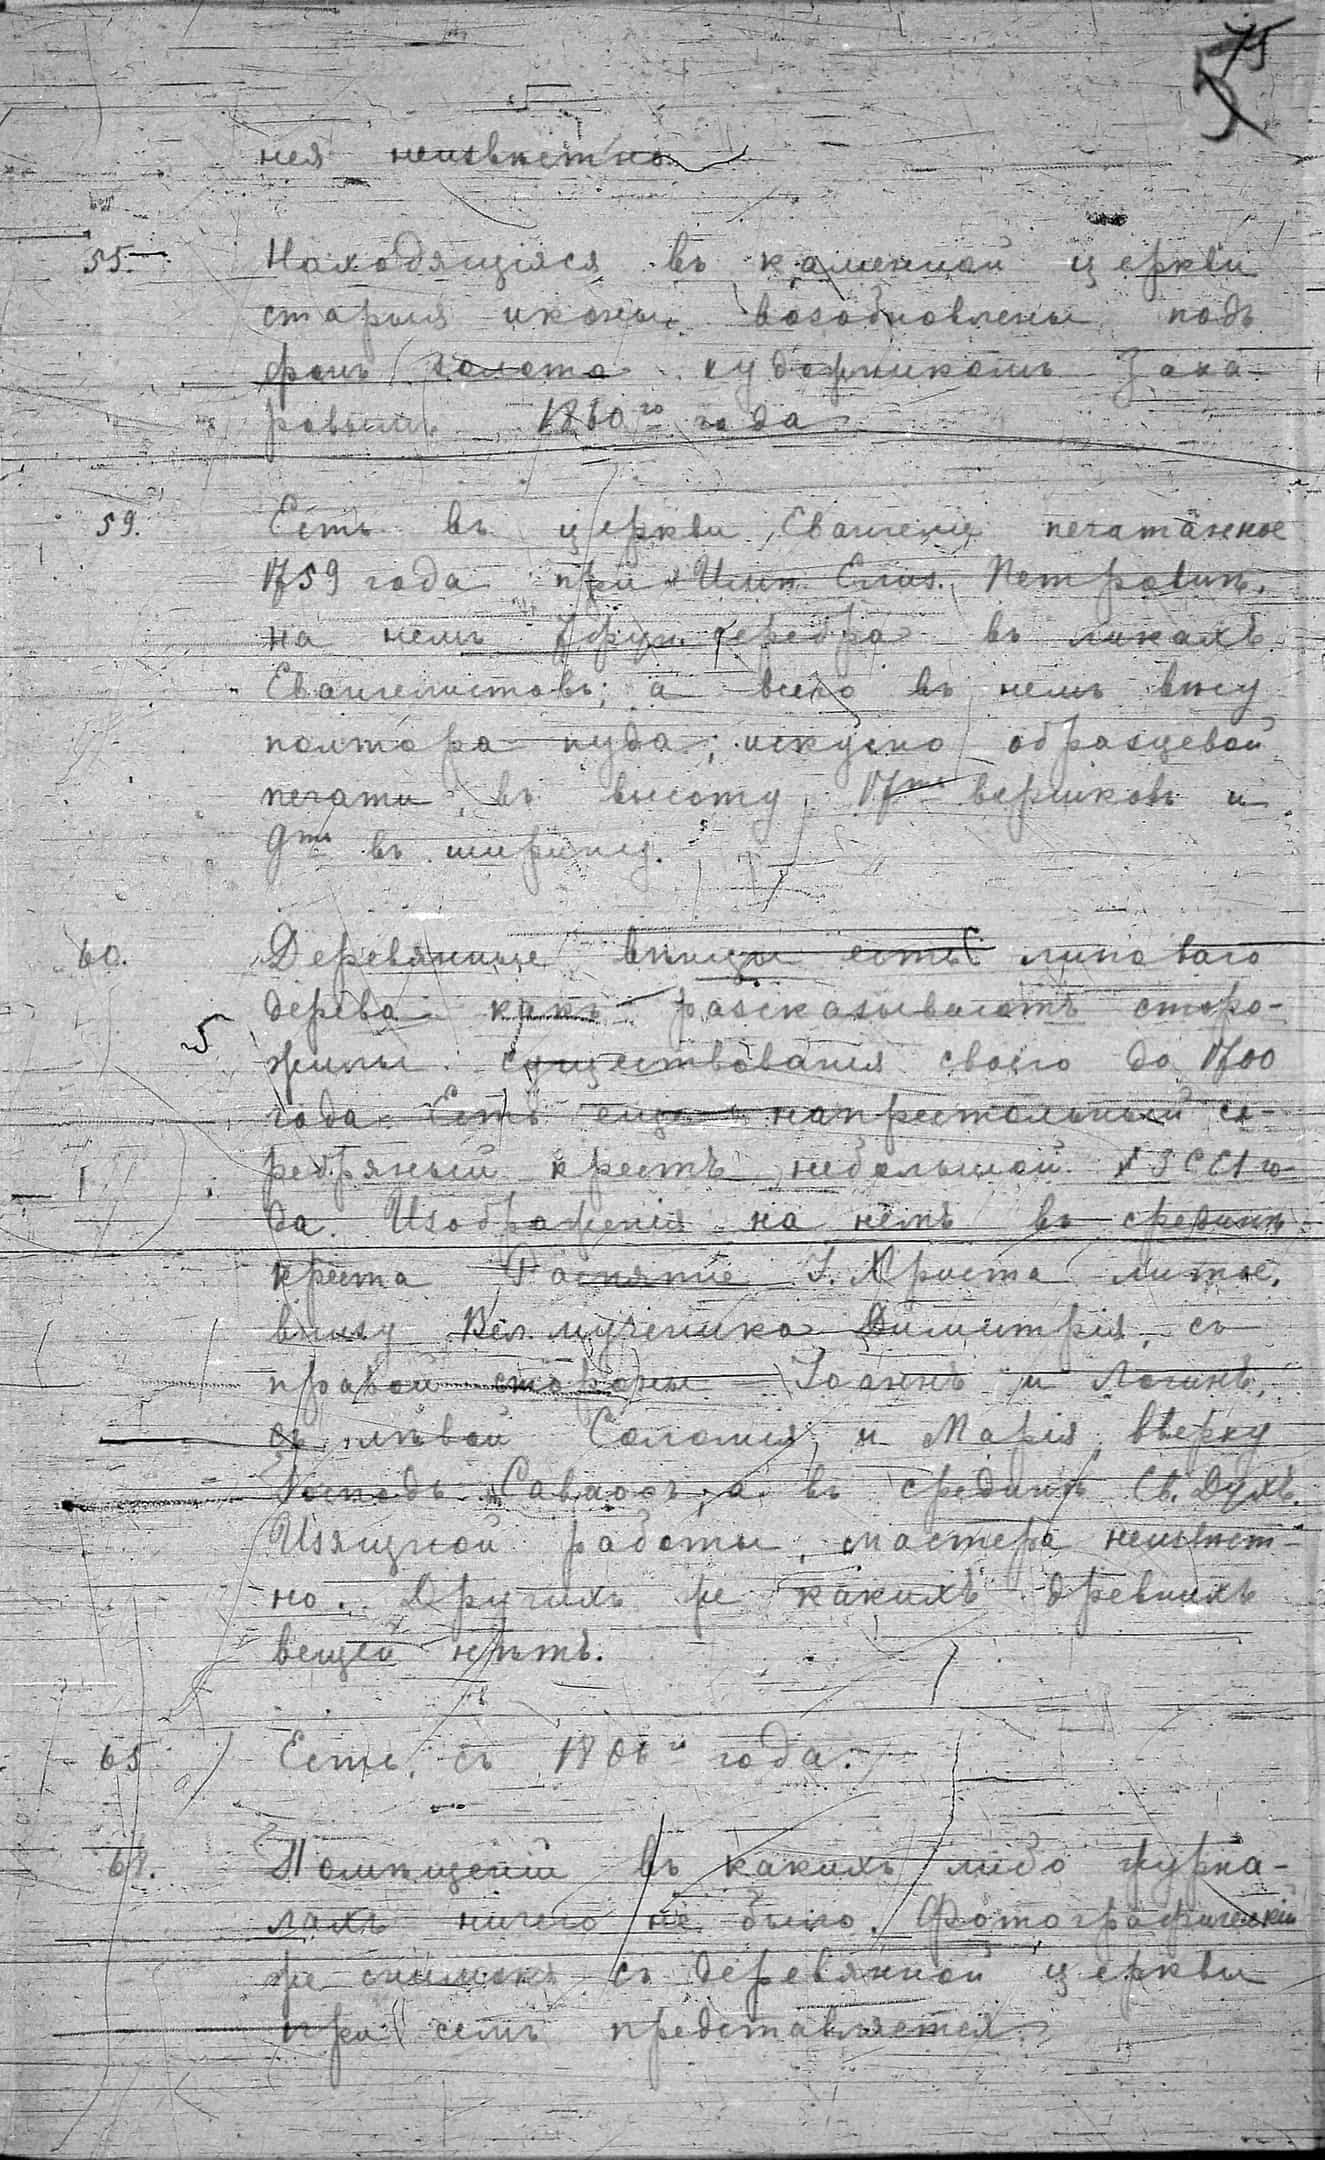 75
нея неизвѣстно.
55. Находящіяся въ каменной церкви
старыя иконы возобновлены подъ
фонъ золота художникомъ Заха-
ровымъ 1860го года
59. Есть въ церкви Евангеліе печатанное
1759 года при Имп. Елиз. Петровнѣ,
на немъ 7 фун. серебра въ ликахъ
Евангелистовъ, а всего въ немъ вѣсу
полтора пуда; искусно образцевой
печати, въ высоту 17ть вершковъ и
9ть въ ширину.
60. Деревянные вѣнцы есть липоваго
дерева какъ разсказываютъ старо-
жилы существованія своего до 1700
года. Есть еще напрестольный се-
ребряный крестъ небольшой го-
да. Изображенія на немъ въ срединѣ
креста Распятіе І. Христа литое,
внизу Вел. мученика Димитрія, съ
правой стороны Іоаннъ и Логинъ,
съ лѣвой Саломія и Марія, вверху
Господь Саваоѳъ, а въ срединѣ Св. Духъ.
Изящной работы, мастера неизвѣст-
но. Другихъ же какихъ древнихъ
вещей нѣтъ.
65 Есть съ 1806го года.
68. Помѣщеній въ какихъ либо журна-
лахъ ничего не было. Фотографическій
же снимокъ съ деревянной церкви
при семъ представляется.